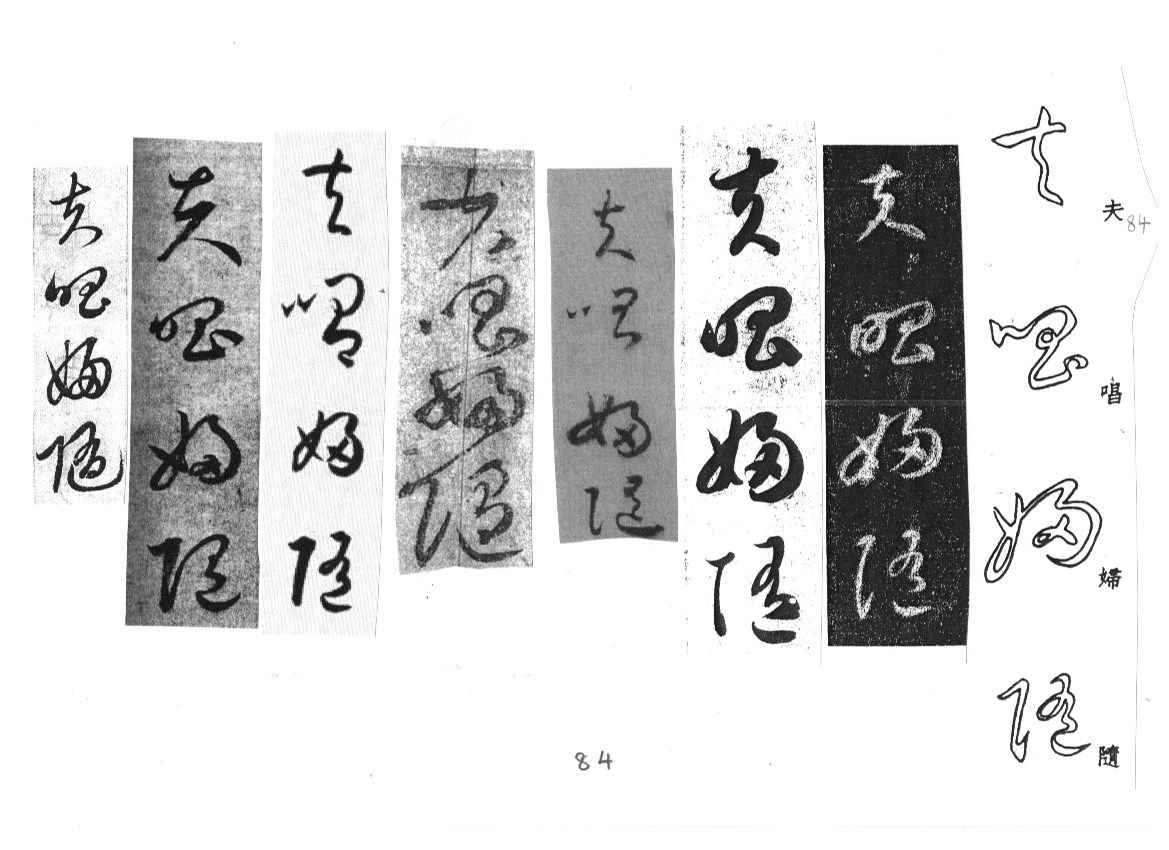 夫唱婦隨
夫唱婦隨
夫唱婦隨
夫唱婦隨
夫唱婦隨
夫唱婦隨
夫唱婦隨
夫唱婦隨
夫唱婦隨
84
84